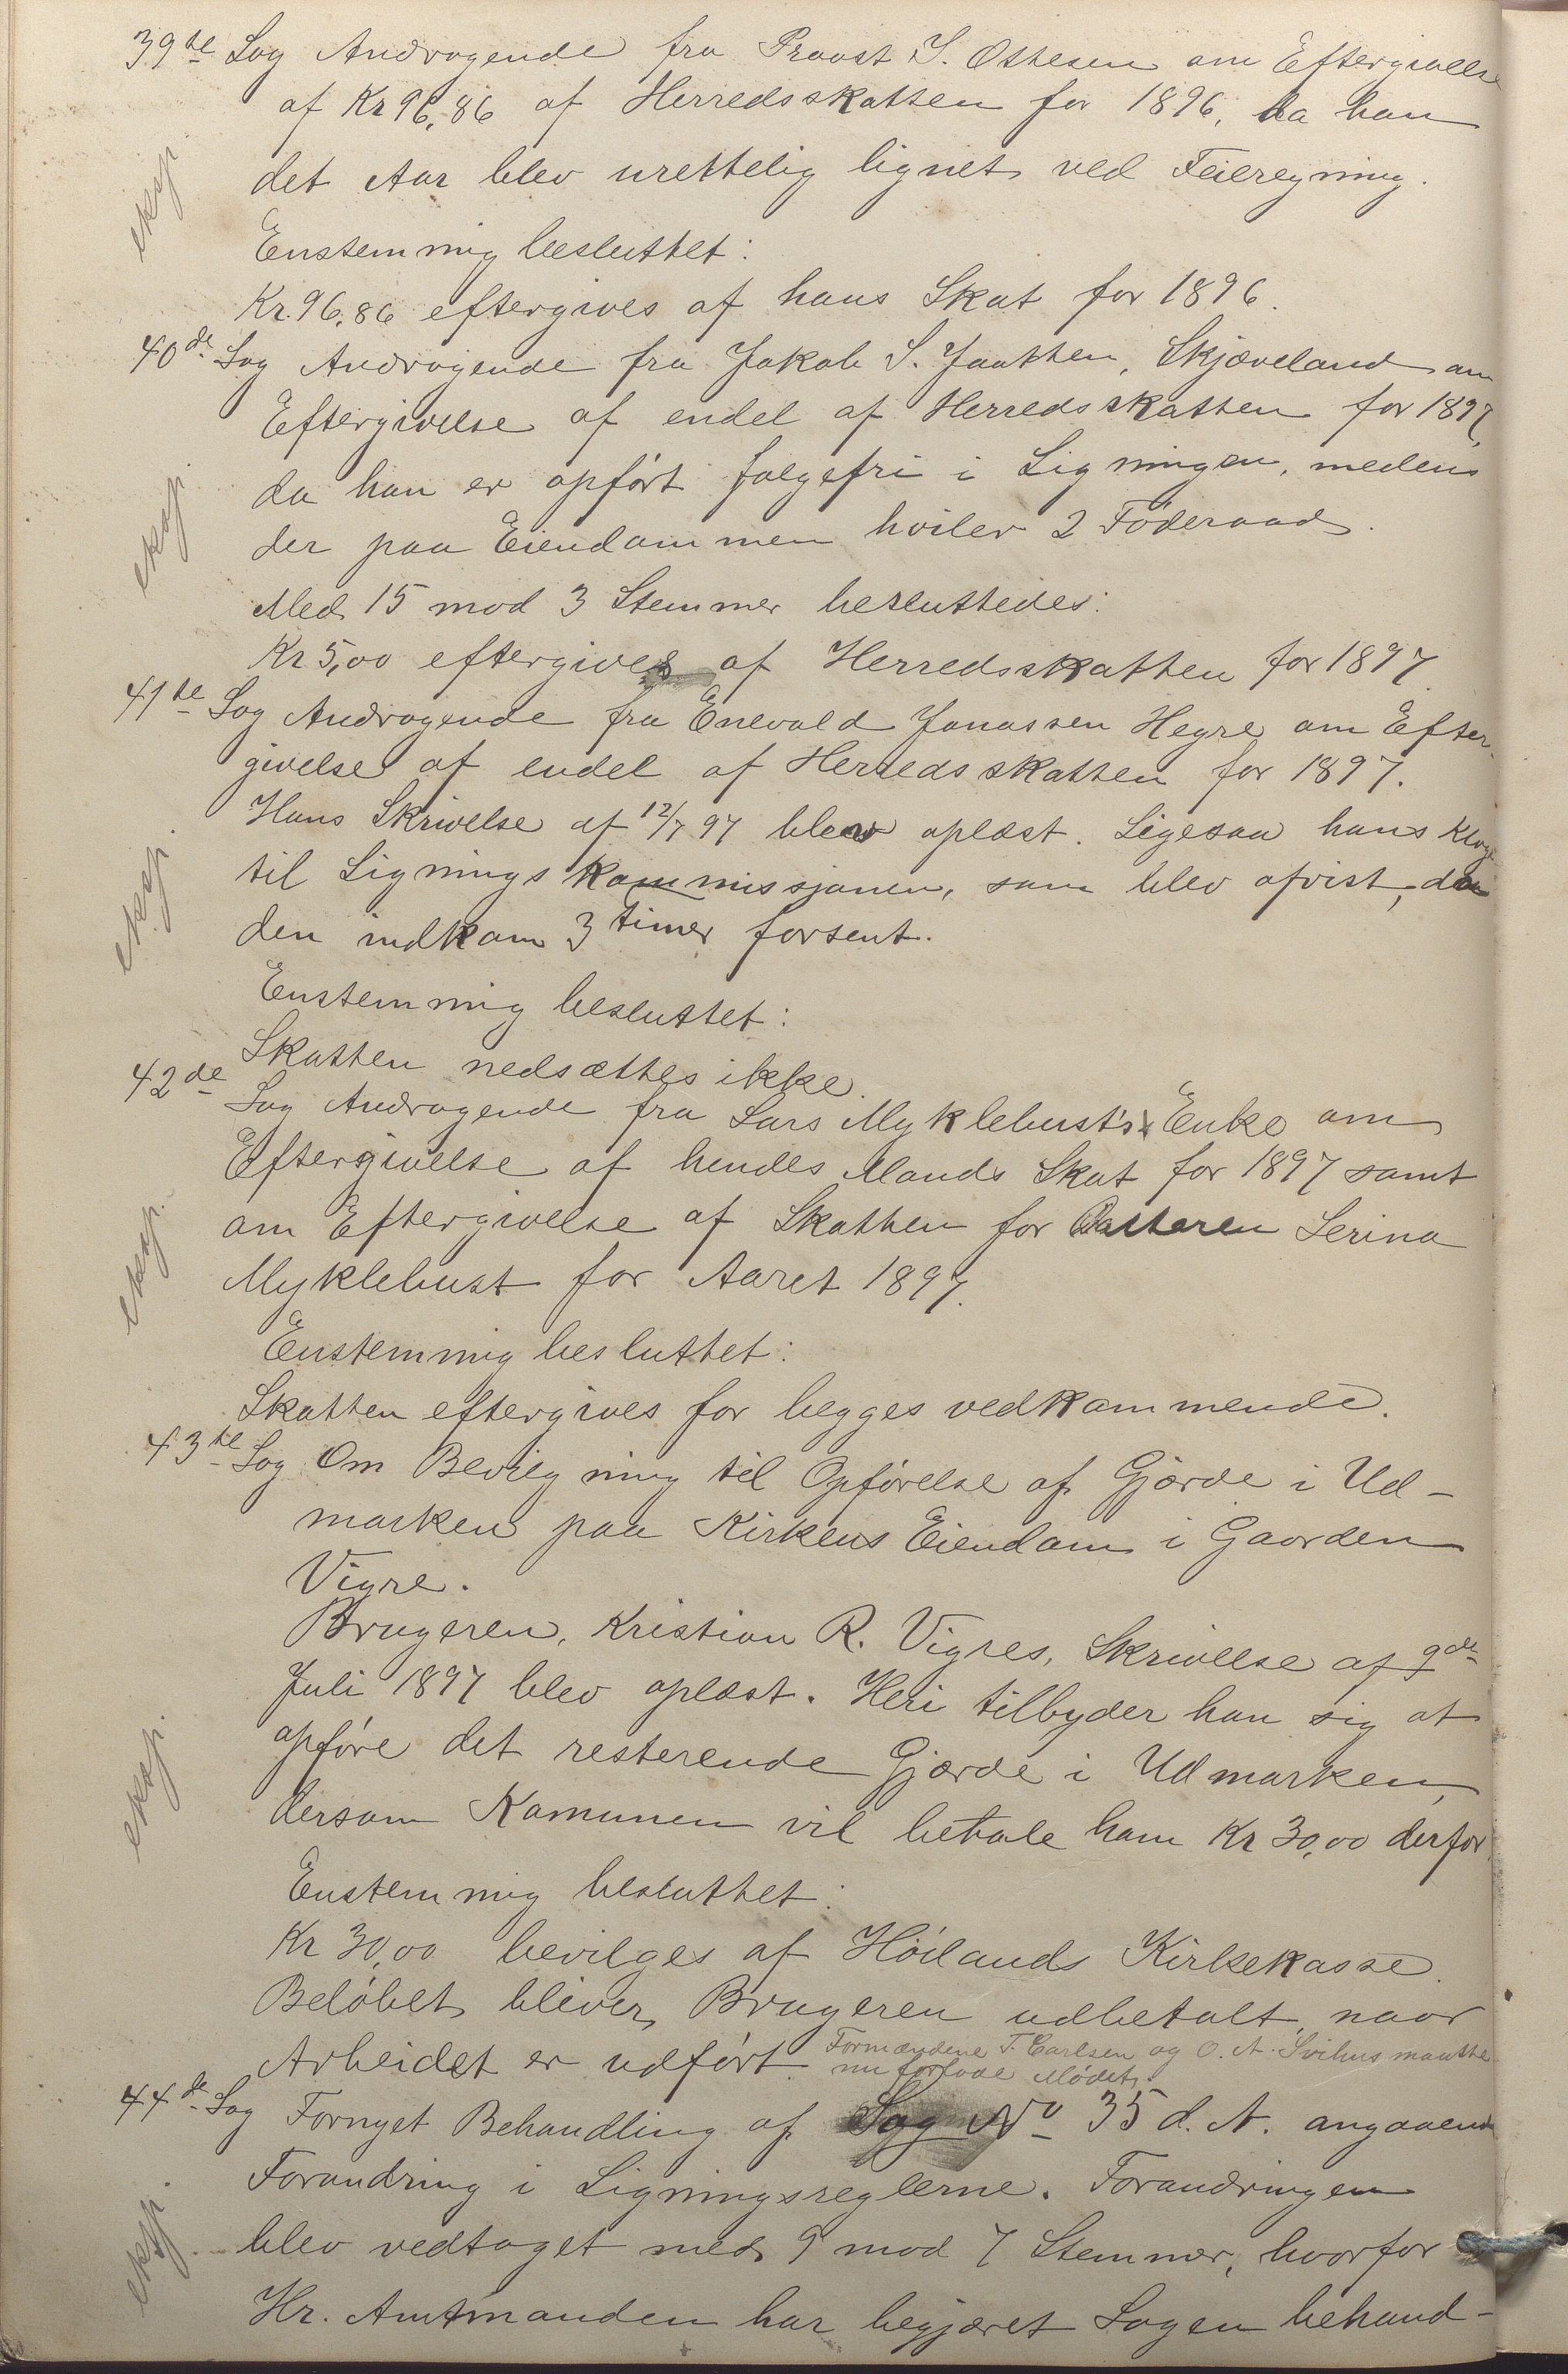 39te Sag Andragende fra Provst I. Ottesen om Eftergivelse
af Kr 96,86 af Herredsskatten for 1896, da han
det Aar blev urettelig lignet ved Feilregning.
eksp.
Enstemmig besluttet:
Kr. 96,86 eftergives af hans Skat for 1896.
40de Sag Andragende fra Jakob S. Jaatten, Skjæveland om
Eftergivelse af endel af Herredsskatten for 1897,
da han er opført folgefri i Ligningen, medens
der paa Eiendommen hviler 2 Føderaad.
eksp.
Med 15 mod 3 Stemmer besluttedes:
Kr 5,00 eftergives af Herredsskatten for 1897.
41te Sag Andragende fra Enevald Jonassen Hegre om Efter-
givelse af endel af Herredsskatten for 1897.
Hans Skrivelse af 12/7 97 blev oplæst. Ligesaa hans Klage
til Ligningskommissjonen, som blev afvist, da
den indkom 3 timer forsent.
eksp.
Enstemmig besluttet:
Skatten nedsættes ikke.
42de Sag Andragende fra Lars Myklebust's Enke om
Eftergivelse af hendes Mands Skat for 1897 samt
om Eftergivelse af Skatten for Datteren Serina
Myklebust for Aaret 1897.
eksp.
Enstemmig besluttet:
Skatten eftergives for begges vedkommende.
43de Sag Om Bevilgning til Opførelse af Gjærde i Ud-
marken paa Kirkens Eiendom i Gaarden
Vigre.
Brugeren, Kristian R. Vigres, Skrivelse af 9de
Juli 1897 blev oplæst. Heri tilbyder han sig at
opføre det resterende Gjærde i Udmarken,
dersom Komunen vil betale ham Kr 30,00 derfor.
eksp.
Enstemmig besluttet:
Kr 30,00 bevilges af Høilands Kirkekasse.
Beløbet bliver Brugeren udbetalt, naar
Arbeidet er udført. Formændene T. Carlsen og O. A. Svihus maatte
nu forlade Mødet.
44de Sag Fornyet Behandling af Sag No 35 d. A. angaaende
Forandring i Ligningsreglerne. Forandringen
blev vedtaget med 9 mod 7 Stemmer, hvorfor
eksp.
Hr. Amtmanden har begjæret Sagen behand-